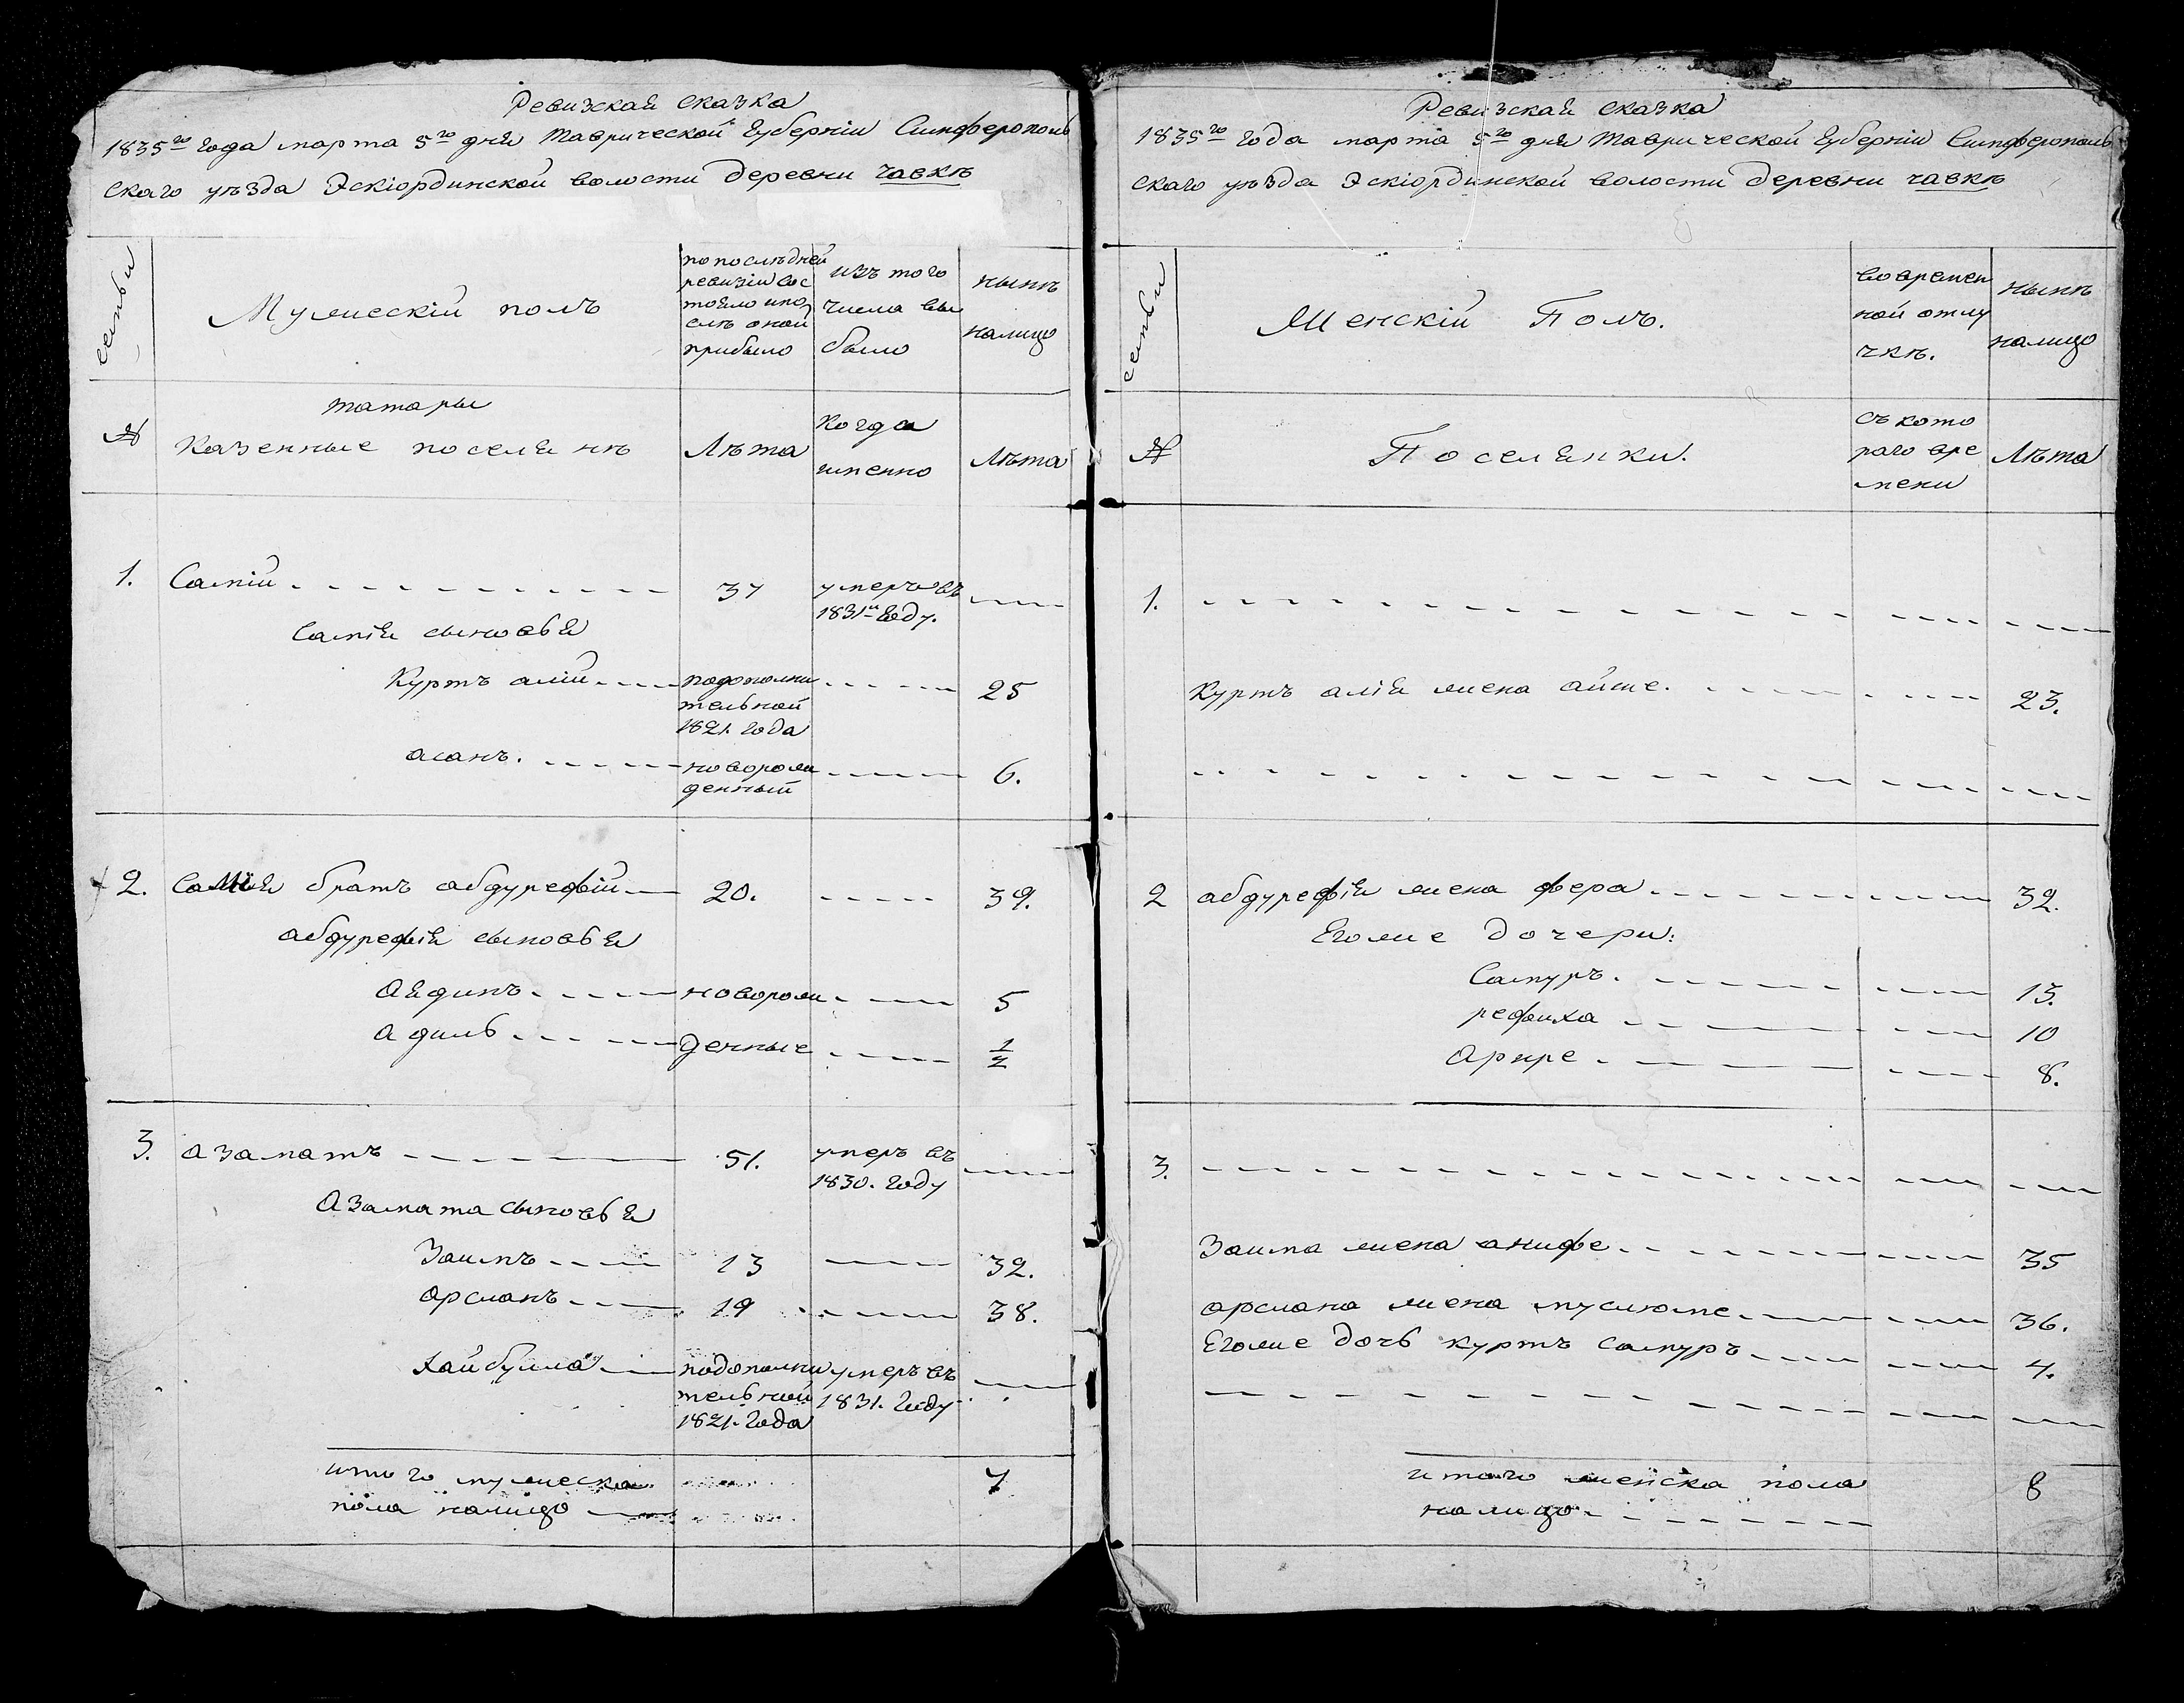 Ревизская сказка
1835го года марта 5го дня Таврической Губернiи Симферополь
скаго уѣзда Эскiординской волости деревни Чавкѣ
семьи
Мужескiй полъ
по послѣдней
ревизiи сос
тояло и по
слѣ оной
прибыло
изъ того
числа вы
было
нынѣ
налицо
№
татары
казенные поселянѣ
Лѣта
Когда
именно
Лѣта
1. Самiй 37 умеръ въ
1831м Году.
Самiя сыновья
Куртъ алiй подополни 25
тельной
1821. года
асанъ. новорож 6.
денный
2. Самiя братъ абдурефiй 20. 39.
абдурефiя сыновья
Аядинъ новорож 5
Адиль денные 1/2
3. Азаматъ 51. умеръ въ
1830. Году
Азамата сыновья
Заимъ 13 32.
арсланъ 19 38.
Хайбулла подополни умеръ въ
тельной 1831. Году
1821. Года
итого мужеска 7
пола налицо
Ревизская сказка
1835го Года марта 5го дня Таврической Губернiи Симферополь
скаго уѣзда Эскiординской волости деревни чавкѣ
семьи
Женскiй Полъ.
во времен
ной отлу
чкѣ.
нынѣ
налицо
№
Поселянки.
съ кото
раго вре
мени
Лѣта
1.
Куртъ алiя жена айше. 23.
2 абдурефiя жена фера 32.
Егоже дочери:
Самуръ. 13.
рефика 10
Арире 8.
3.
Заима жена анифе 35
арслана жена муслюме 36.
Егоже дочь куртъ самуръ 4.
итого женска пола 8
налицо